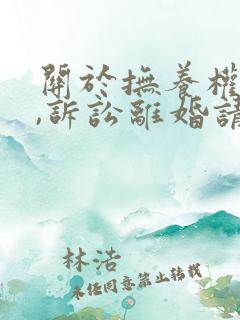 關於撫養權
,訴訟離婚請
林浩
未經同意禁止轉載